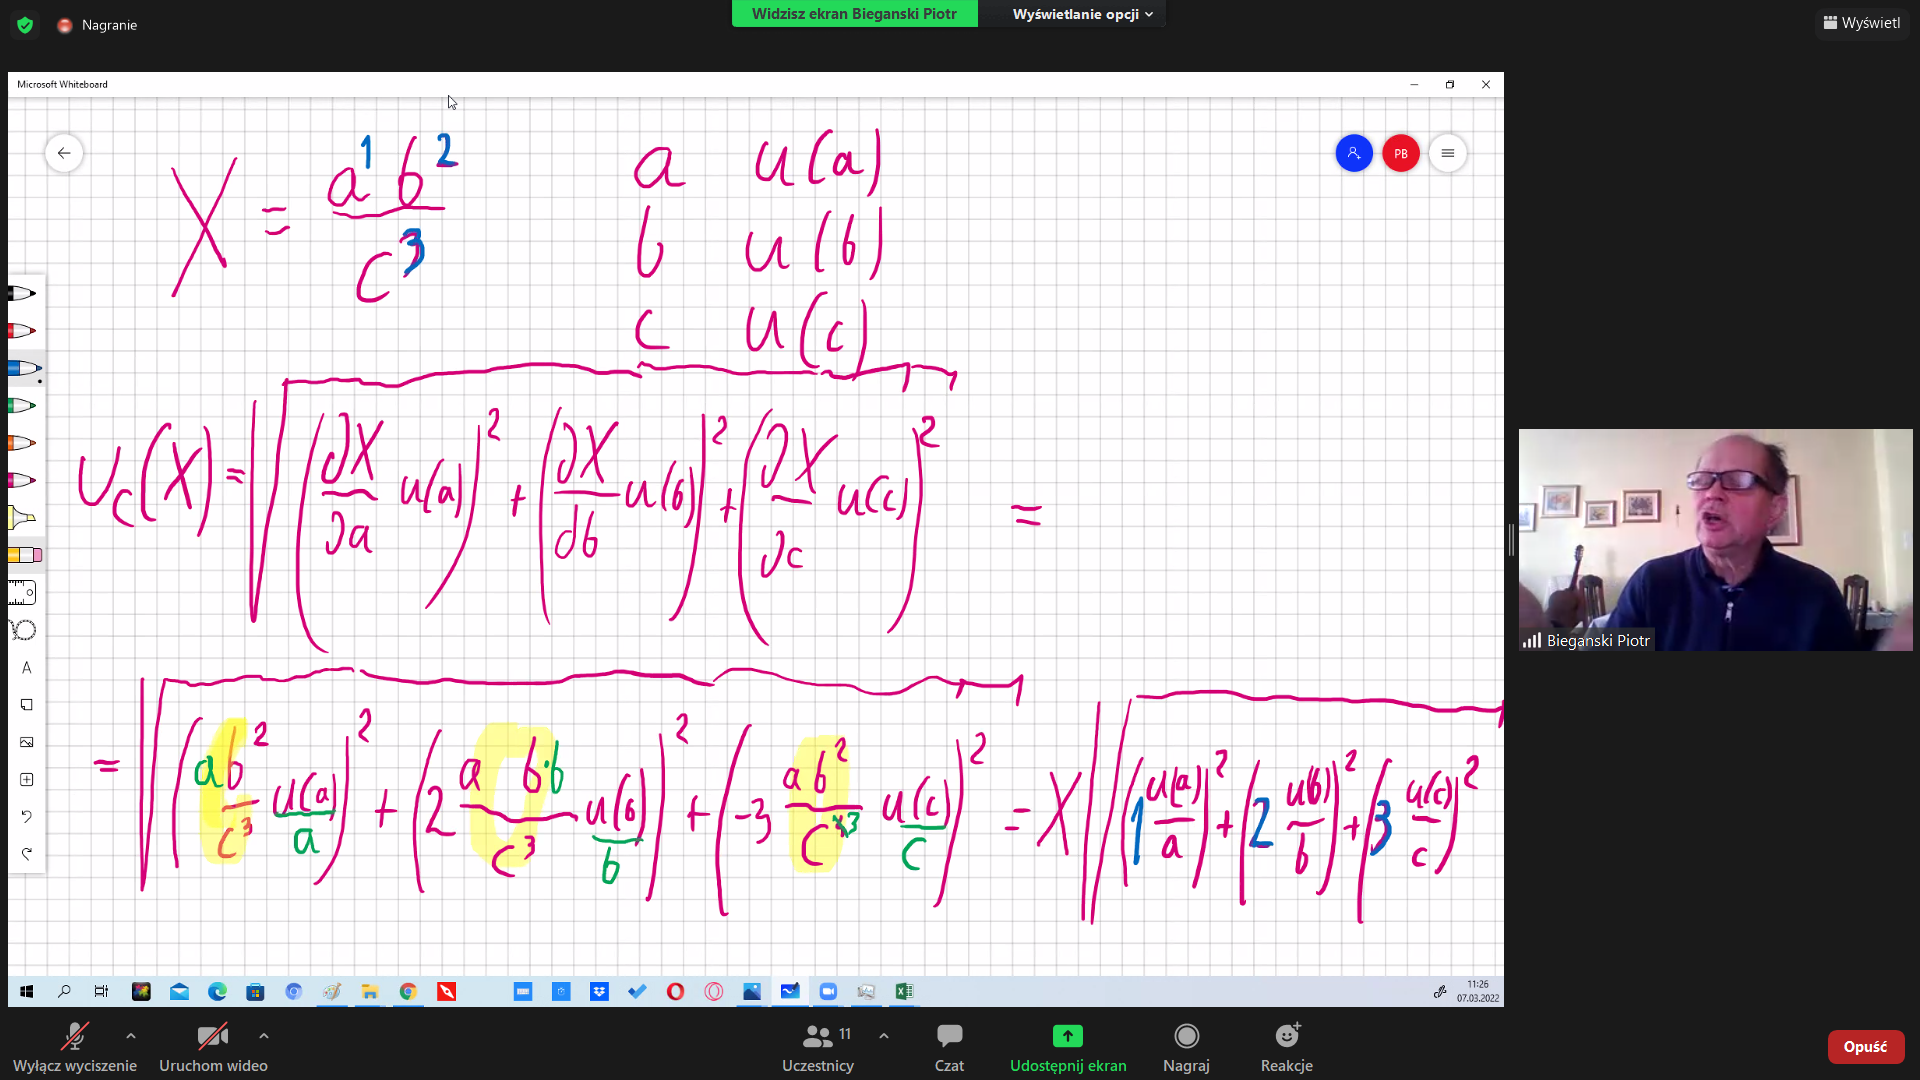 Nagranie
Widzisz ekran Bieganski Piotr
Wyświetlanie opcji
Wyświetl
Microsoft Whiteboard
X = a¹ b² / c³
a u(a)
b u(b)
c u(c)
PB
u_c(X) = √( (∂X/∂a u(a))² + (∂X/∂b u(b))² + (∂X/∂c u(c))² ) =
= √( (ab²/c³ u(a)/a)² + (2 a b·b/c³ u(b)/b)² + (-3 ab²/c³ u(c)/c)² ) = X √( (1 u(a)/a)² + (2 u(b)/b)² + (3 u(c)/c)² )
A
Bieganski Piotr
11:26
07.03.2022
Wyłącz wyciszenie
Uruchom wideo
11
Uczestnicy
Czat
Udostępnij ekran
Nagraj
Reakcje
Opuść